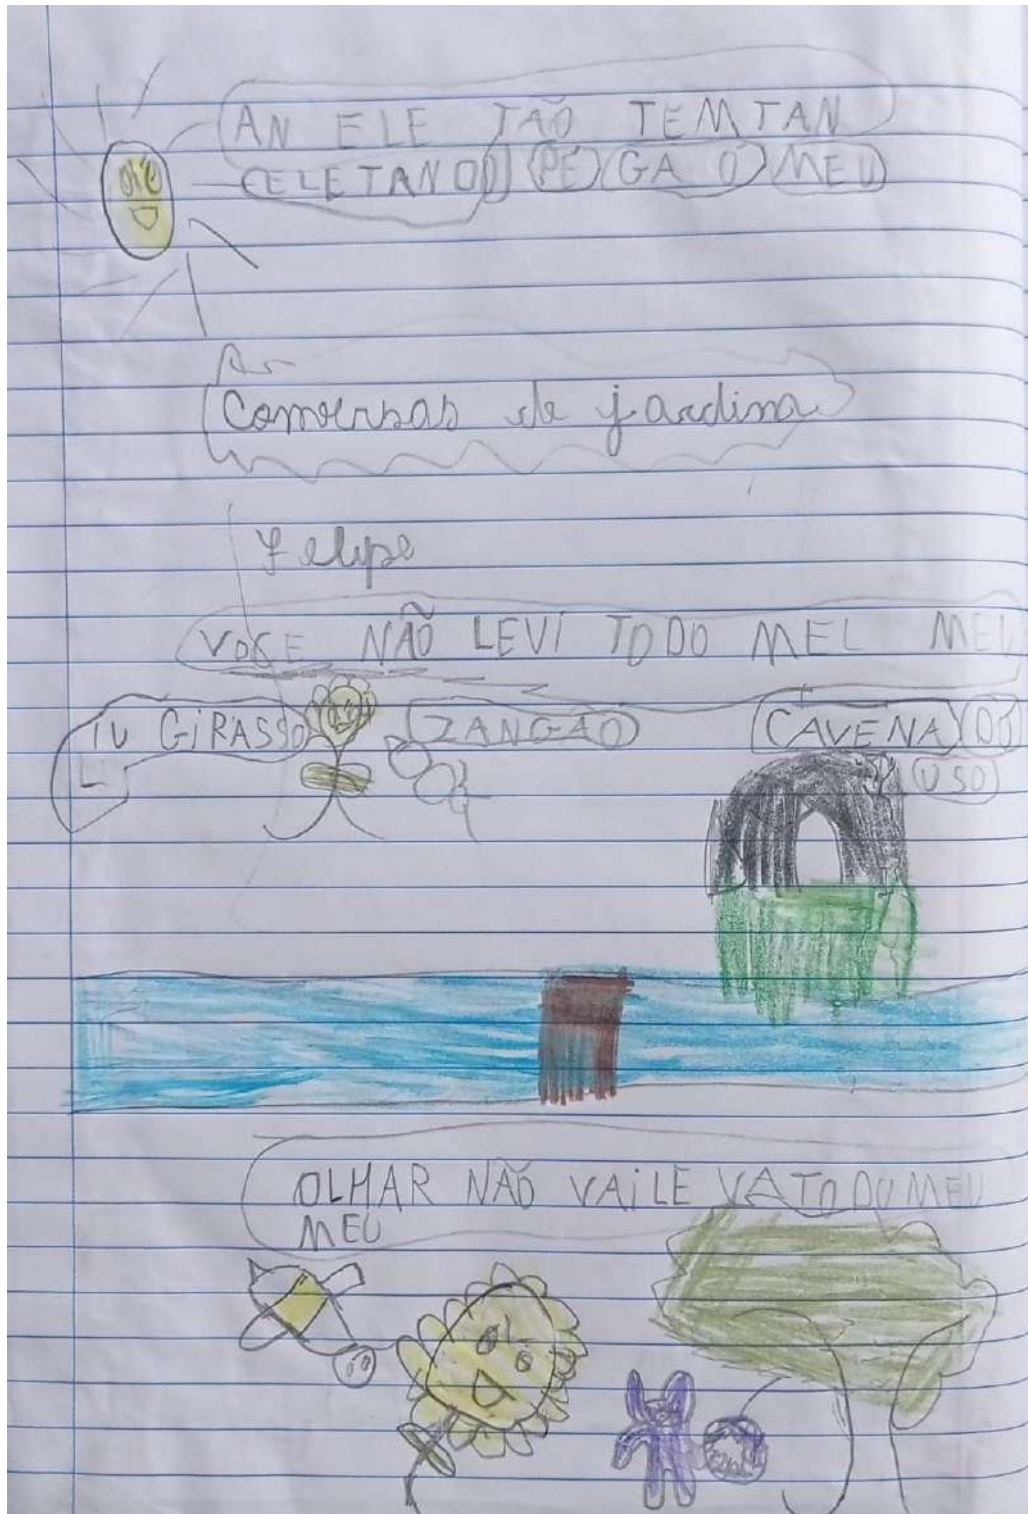 AN ELE TÃO TEMTAN
CELETANO PÉ GA O MEU
As
Conversas de jardina
Felipe
VOCE NÃO LEVI TODO MEL MEU
IU GIRASSO ZANGÃO CAVENA DO
L USO
OLHAR NÃO VAILE VATODUMEU
MEU